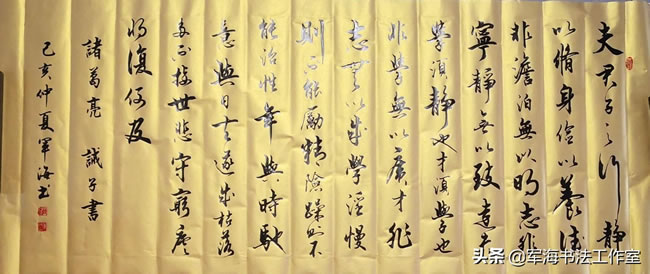 夫君子之行靜
以脩身儉以養德
非澹泊無以明志非
寧靜無以致遠夫
學須靜也才須學也
非學無以廣才非
志無以成學淫慢
則不能勵精險躁則不
能治性年與時馳
意與日去遂成枯落
多不接世悲守窮廬
將復何及
諸葛亮 誡子書
己亥仲夏軍海書
头条 @军海书法工作室